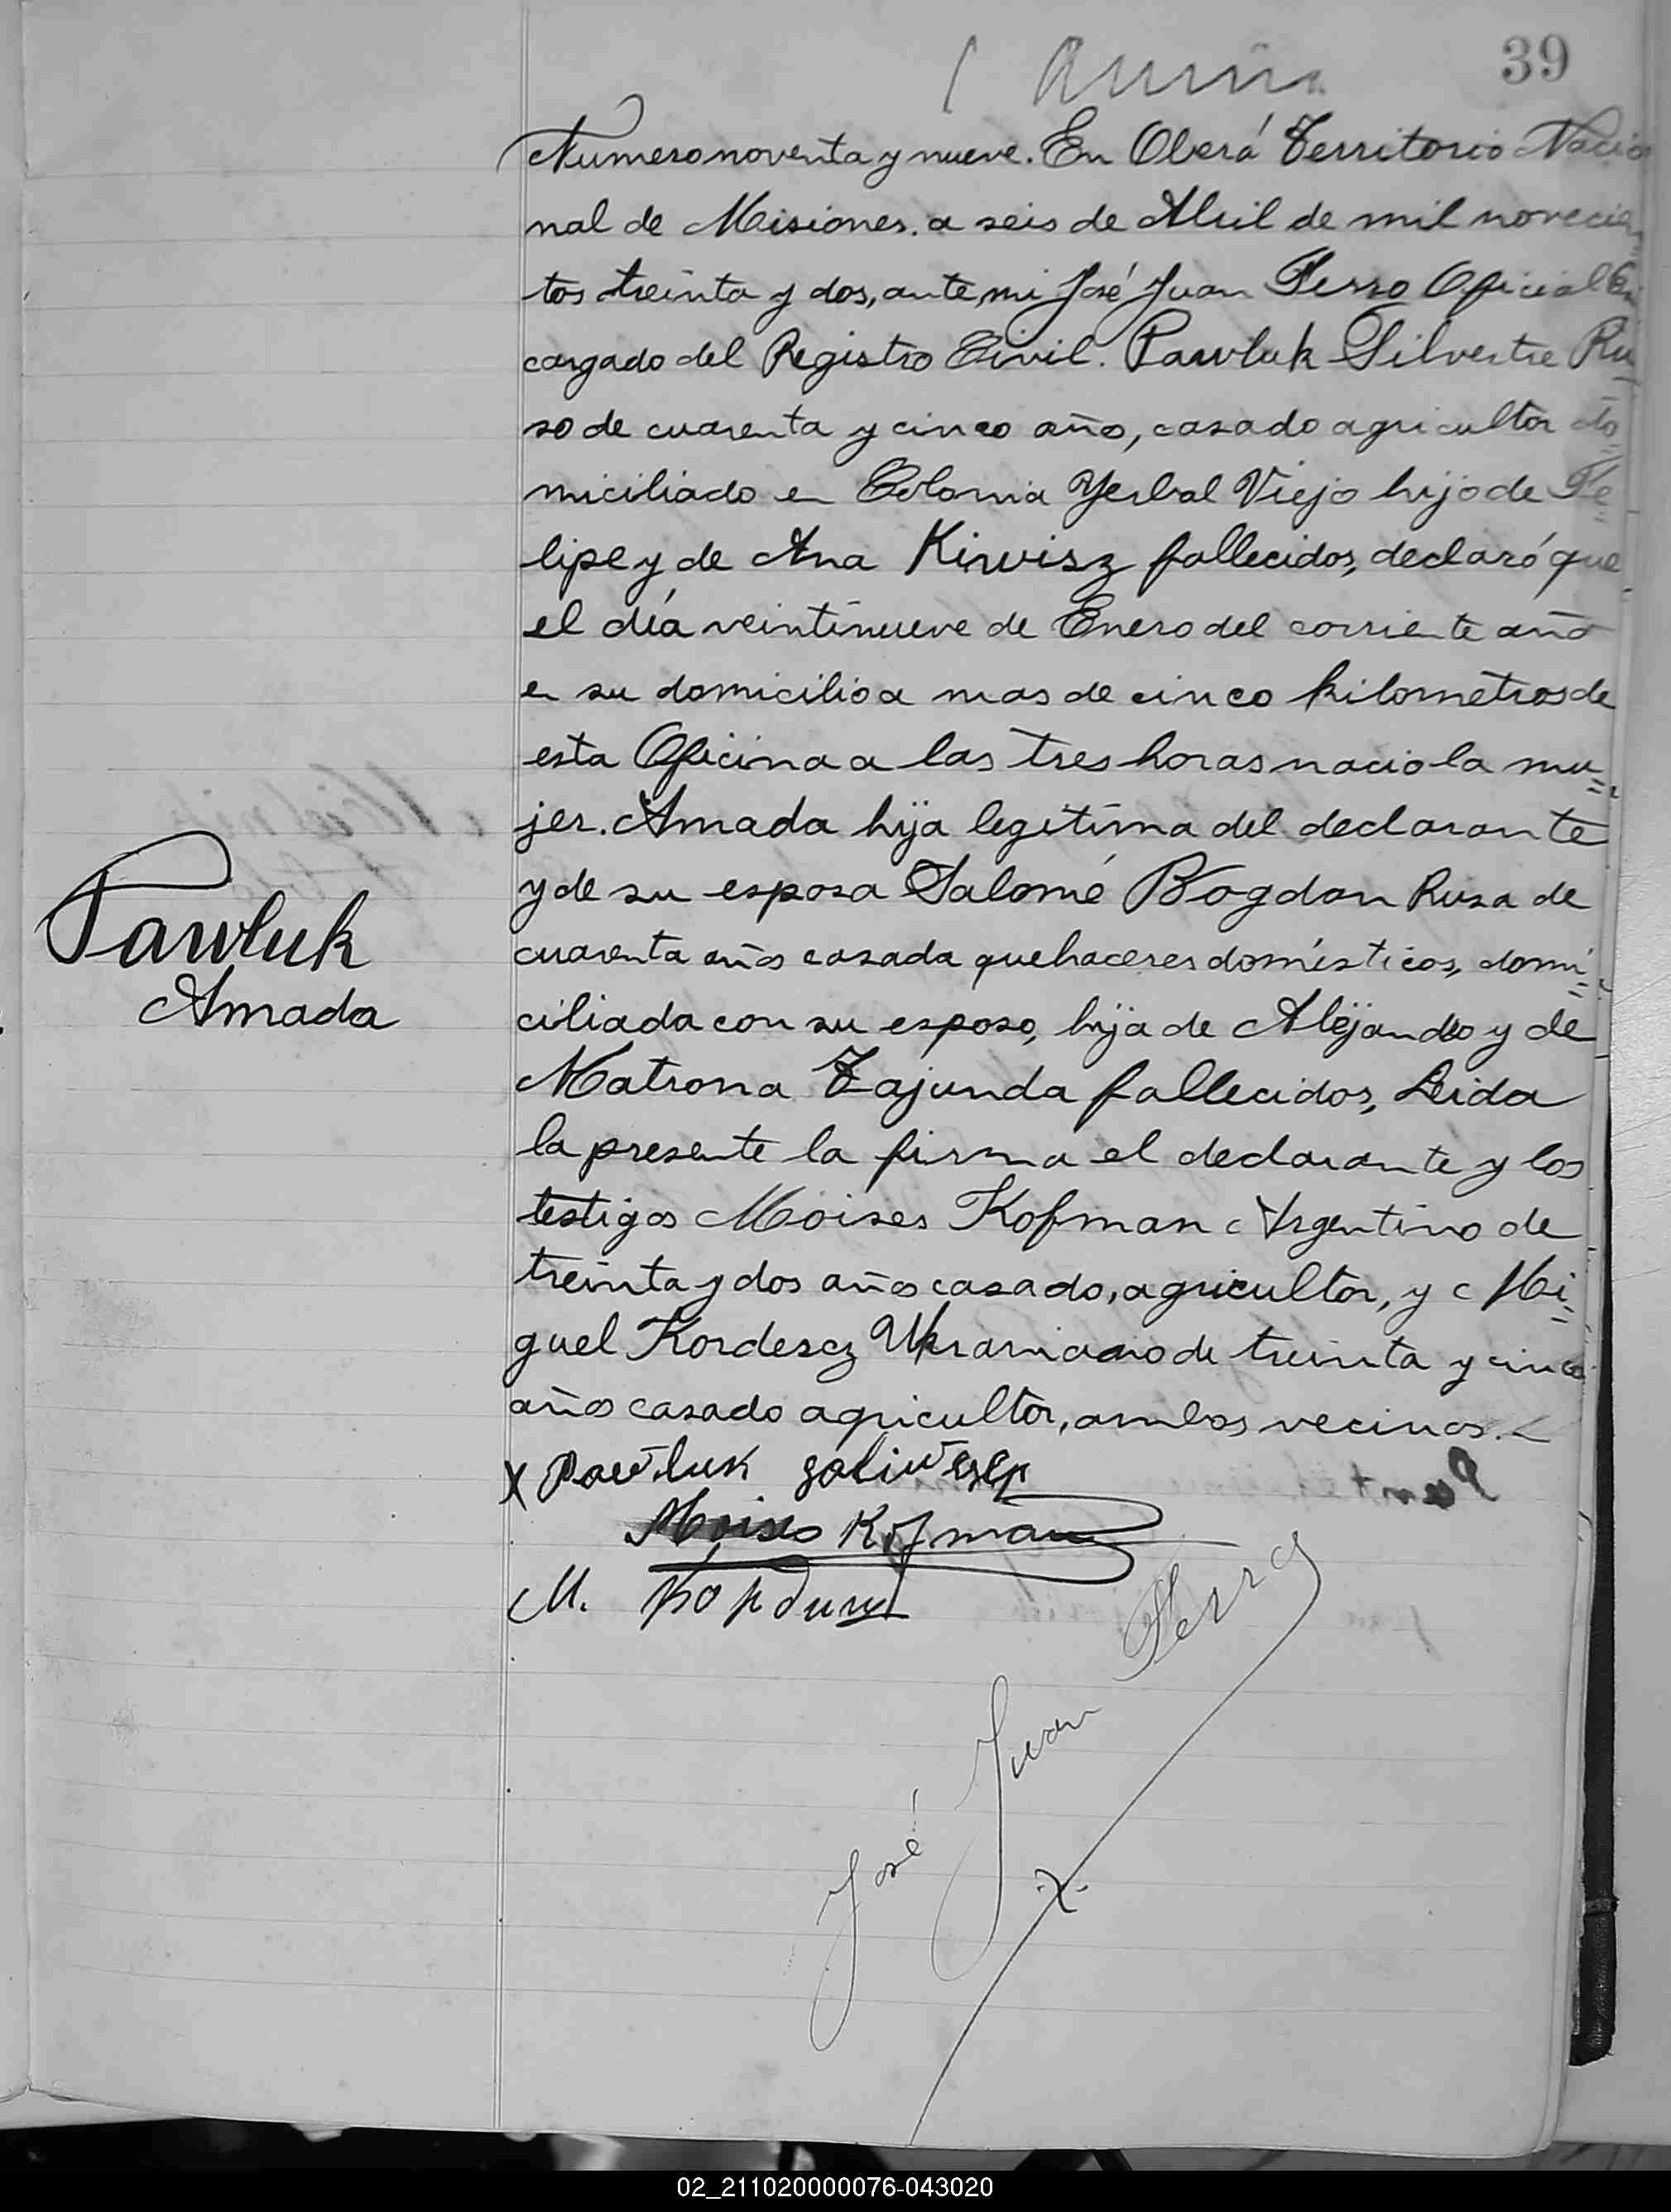 39
Numero noventa y nueve. En Oberá Territorio Nacio
nal de Misiones. a seis de Abril de mil novecien
tos treinta y dos, ante, mi José Juan Ferro Oficial En
cargado del Registro Civil. Pawluk Silvestre Ru
so de cuarenta y cinco año, casado agricultor do
miciliado en Colonia Yerbal Viejo hijo de Fe
lipe y de Ana Kirvisz fallecidos, declaró que
el día veintinueve de Enero del corriente año
en su domicilio a mas de cinco kilometros de
esta Oficina a las tres horas nacio la mu
jer. Amada hija legitima del declarante
y de su esposa Salomé Bogdan Rusa de
cuarenta años casada quehaceres domésticos, domi
ciliada con su esposo, hija de Alejandro y de
Matrona Tajunda fallecidos, Leida
la presente la firma el declarante y los
testigos Moises Kofman Argentino de
treinta y dos años casado, agricultor, y Mi
guel Kordesz Ukraniano de treinta y cinco
años casado agricultor, ambos vecinos.
Pawluk
Amada
X Pawluk
Moises Kofman
M.
José Juan Ferro
02_211020000076-043020